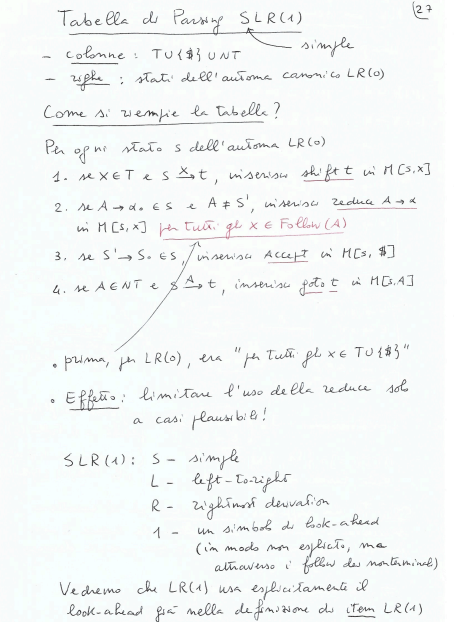 27
Tabella di Parsing SLR(1)
simple
- colonne : T ∪ {$} ∪ NT
- righe : stati dell'automa canonico LR(0)
Come si riempie la tabella?
Per ogni stato s dell'automa LR(0)
1. se x ∈ T e s →x t, inserisci shift t in M[s,x]
2. se A → α. ∈ s e A ≠ S', inserisci reduce A → α
in M[s,x] per tutti gli x ∈ Follow(A)
3. se S' → S. ∈ s, inserisci Accept in M[s,$]
4. se A ∈ NT e s →A t, inserisci goto t in M[s,A]
• prima, per LR(0), era "per tutti gli x ∈ T ∪ {$}"
• Effetto : limitare l'uso della reduce solo
a casi plausibili!
SLR(1): S - simple
L - left-to-right
R - rightmost derivation
1 - un simbolo di look-ahead
(in modo non esplicito, ma
attraverso i follow dei nonterminali)
Vedremo che LR(1) usa esplicitamente il
look-ahead già nella definizione di item LR(1)